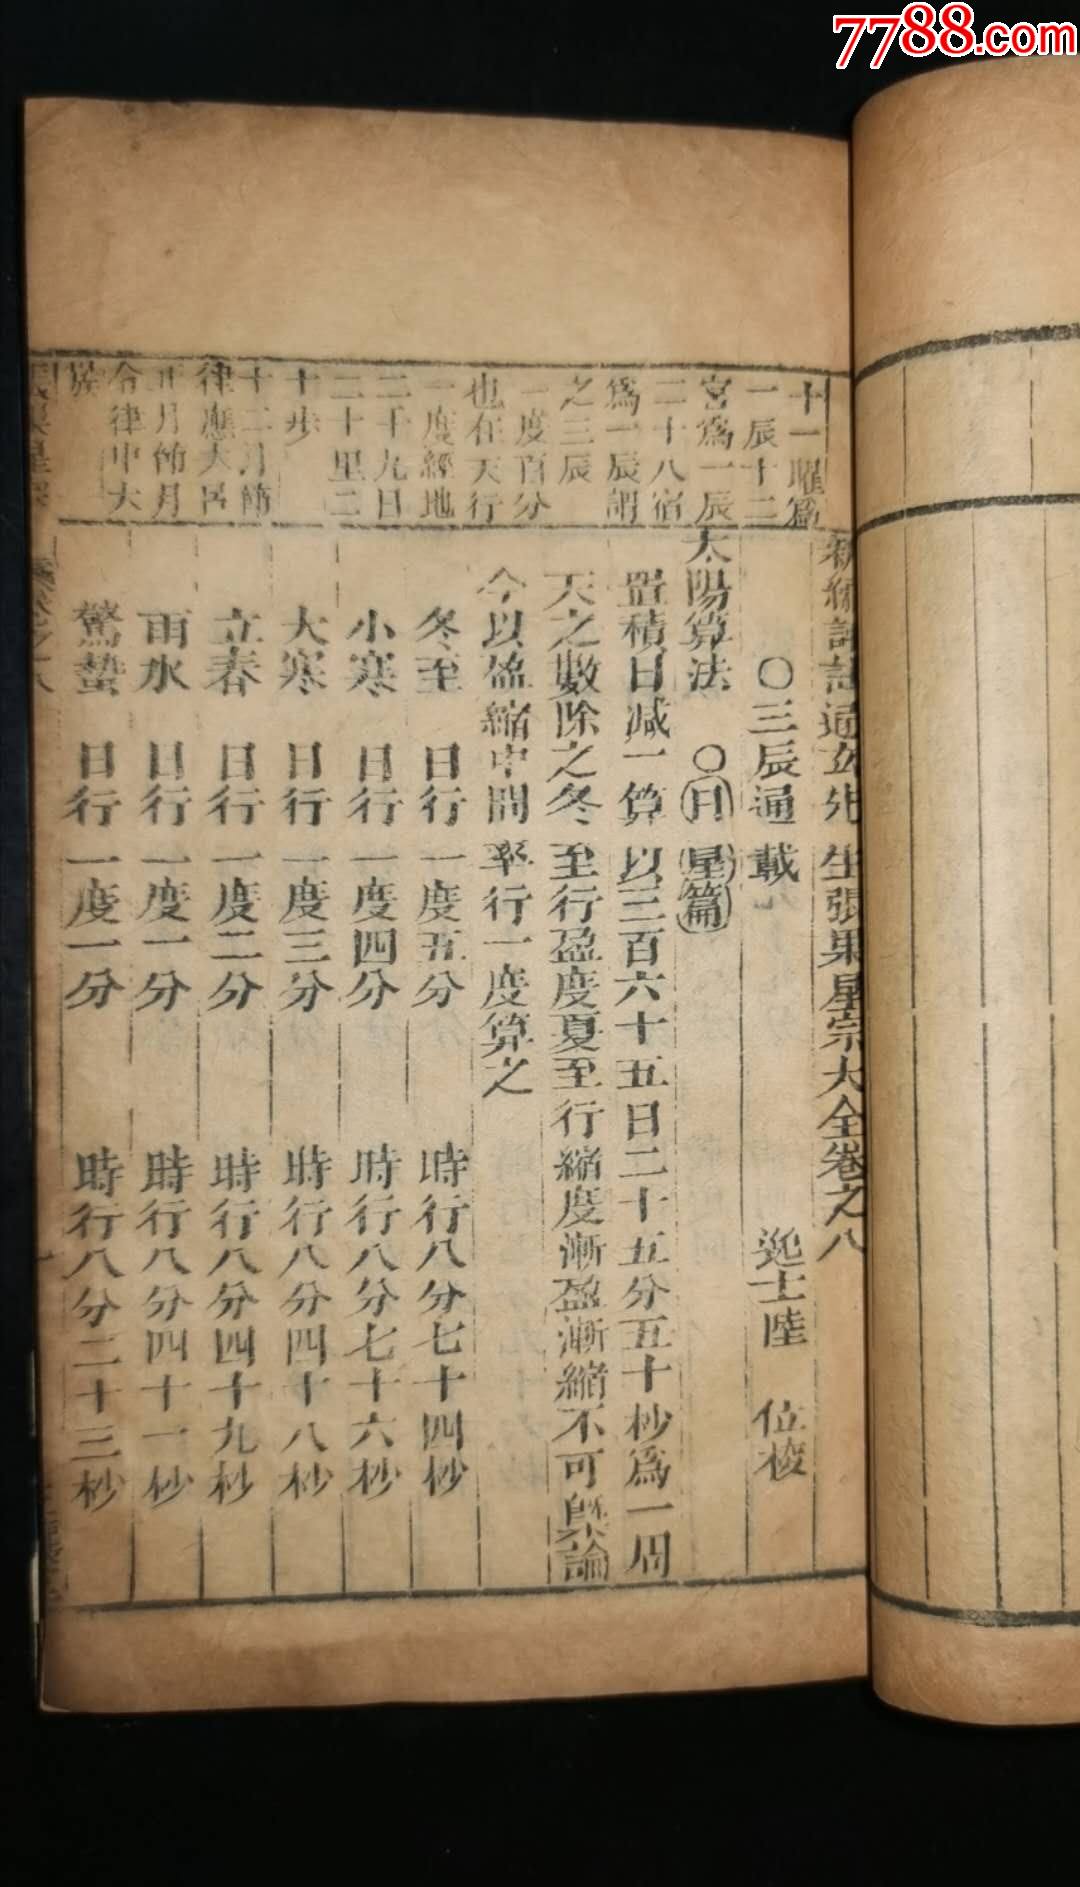 7788.com
新編評註通玄先生張果星宗大全卷之八
〇三辰通載
逸士陸 位 梭
太陽算法 〇日星篇
置積日减一算以三百六十五日二十五分五十杪為一周
天之數除之冬至行盈度夏至行縮度漸盈漸縮不可槩論
今以盈縮中間率行一度算之
冬至 日行一度五分 時行八分七十四杪
小寒 日行一度四分 時行八分七十六杪
大寒 日行一度三分 時行八分四十八杪
立春 日行一度二分 時行八分四十九杪
雨水 日行一度一分 時行八分四十一杪
驚蟄 日行一度一分 時行八分二十三杪
十一曜爲
一辰十二
宮爲一辰
二十八宿
爲一辰謂
之三辰
一度百分
也在天行
一度經地
二千九百
二十里二
十步
十二月節
律應大呂
正月節月
令律中大
簇